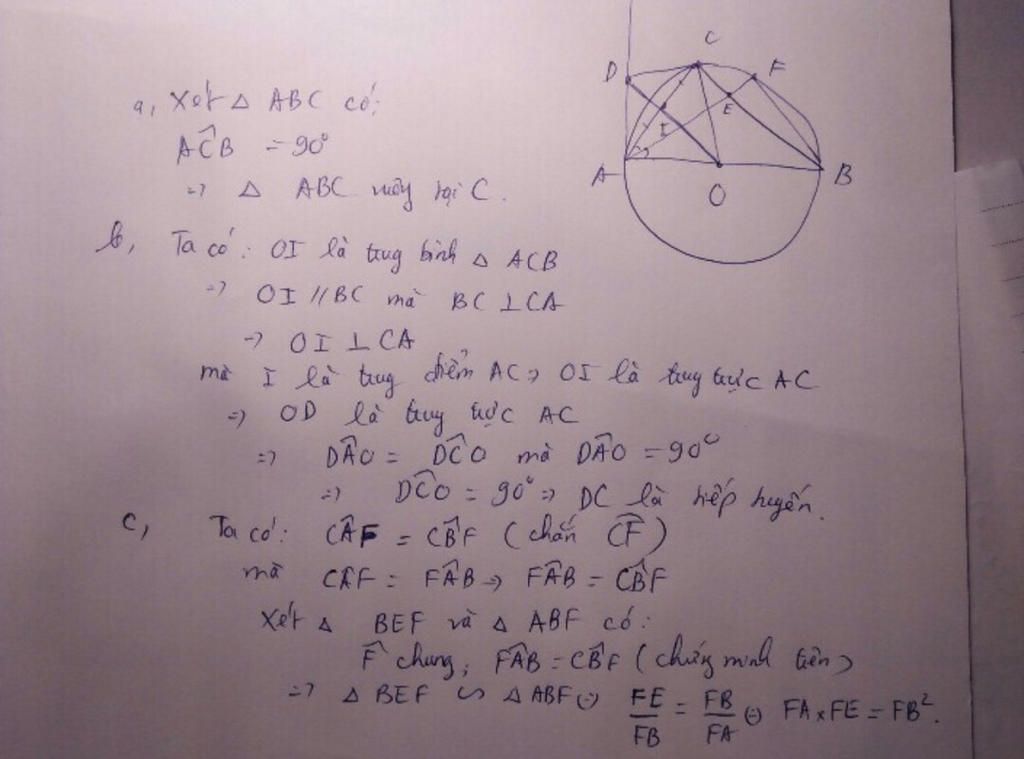 D
C
F
I
E
A
O
B
a, Xét △ ABC có:
AĈB = 90°
=> △ ABC vuông tại C.
b, Ta có: OI là trung bình △ ACB
=> OI // BC mà BC ⊥ CA
=> OI ⊥ CA
mà I là trung điểm AC => OI là trung trực AC
=> OD là trung trực AC
=> DÂO = DĈO mà DÂO = 90°
=> DĈO = 90° => DC là tiếp tuyến.
c, Ta có: CÂF = CB̂F (chắn CF)
mà CÂF = FÂB => FÂB = CB̂F
Xét △ BEF và △ ABF có:
F̂ chung; FÂB = CB̂F (chứng minh trên)
=> △ BEF ∽ △ ABF (=) FE/FB = FB/FA (=) FA × FE = FB².